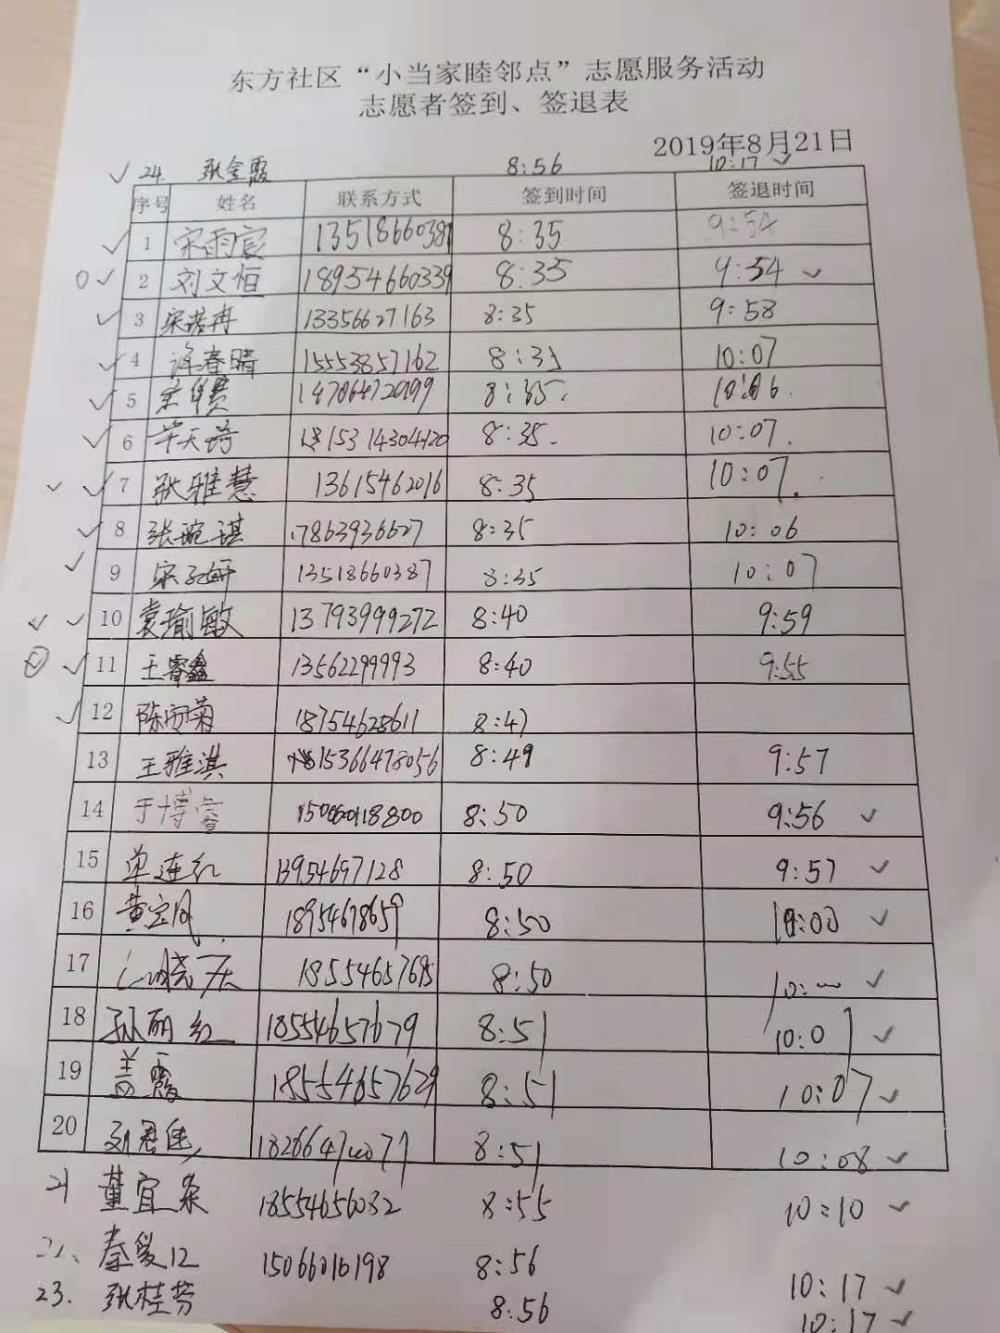 东方社区“小当家睦邻点”志愿服务活动
志愿者签到、签退表
2019年8月21日
24. 张金霞 8:56 10:17
序号 姓名 联系方式 签到时间 签退时间
1 宋雨宸 13518660387 8:35 9:54
2 刘文恒 18954660339 8:35 9:54
3 宋诺冉 13356627163 8:35 9:58
4 许春晴 15553857162 8:35 10:07
5 8:35. 10:06.
6 15314304120 8:35. 10:07.
7 耿雅慧 13615462016 8:35 10:07.
8 张琬琪 17863936627 8:35 10:06
9 宋子妍 13518660387 8:35 10:07
10 袁瑜敏 13793999272 8:40 9:59
11 王睿鑫 13562299993 8:40 9:55
12 18754628611 8:47
13 王雅淇 15366478056 8:49 9:57
14 于博睿 15006018800 8:50 9:56
15 单连红 13954697128 8:50 9:57
16 8:50 10:00
17 18554657695 8:50
18 孙丽红 18554657679 8:51 10:07
19 盖霞 18554657629 8:51 10:07
20 8:51 10:08
21 董宜条 18554656032 8:55 10:10
22、 秦爱12 15066016198 8:56 10:17
23. 张桂芬 8:56 10:17